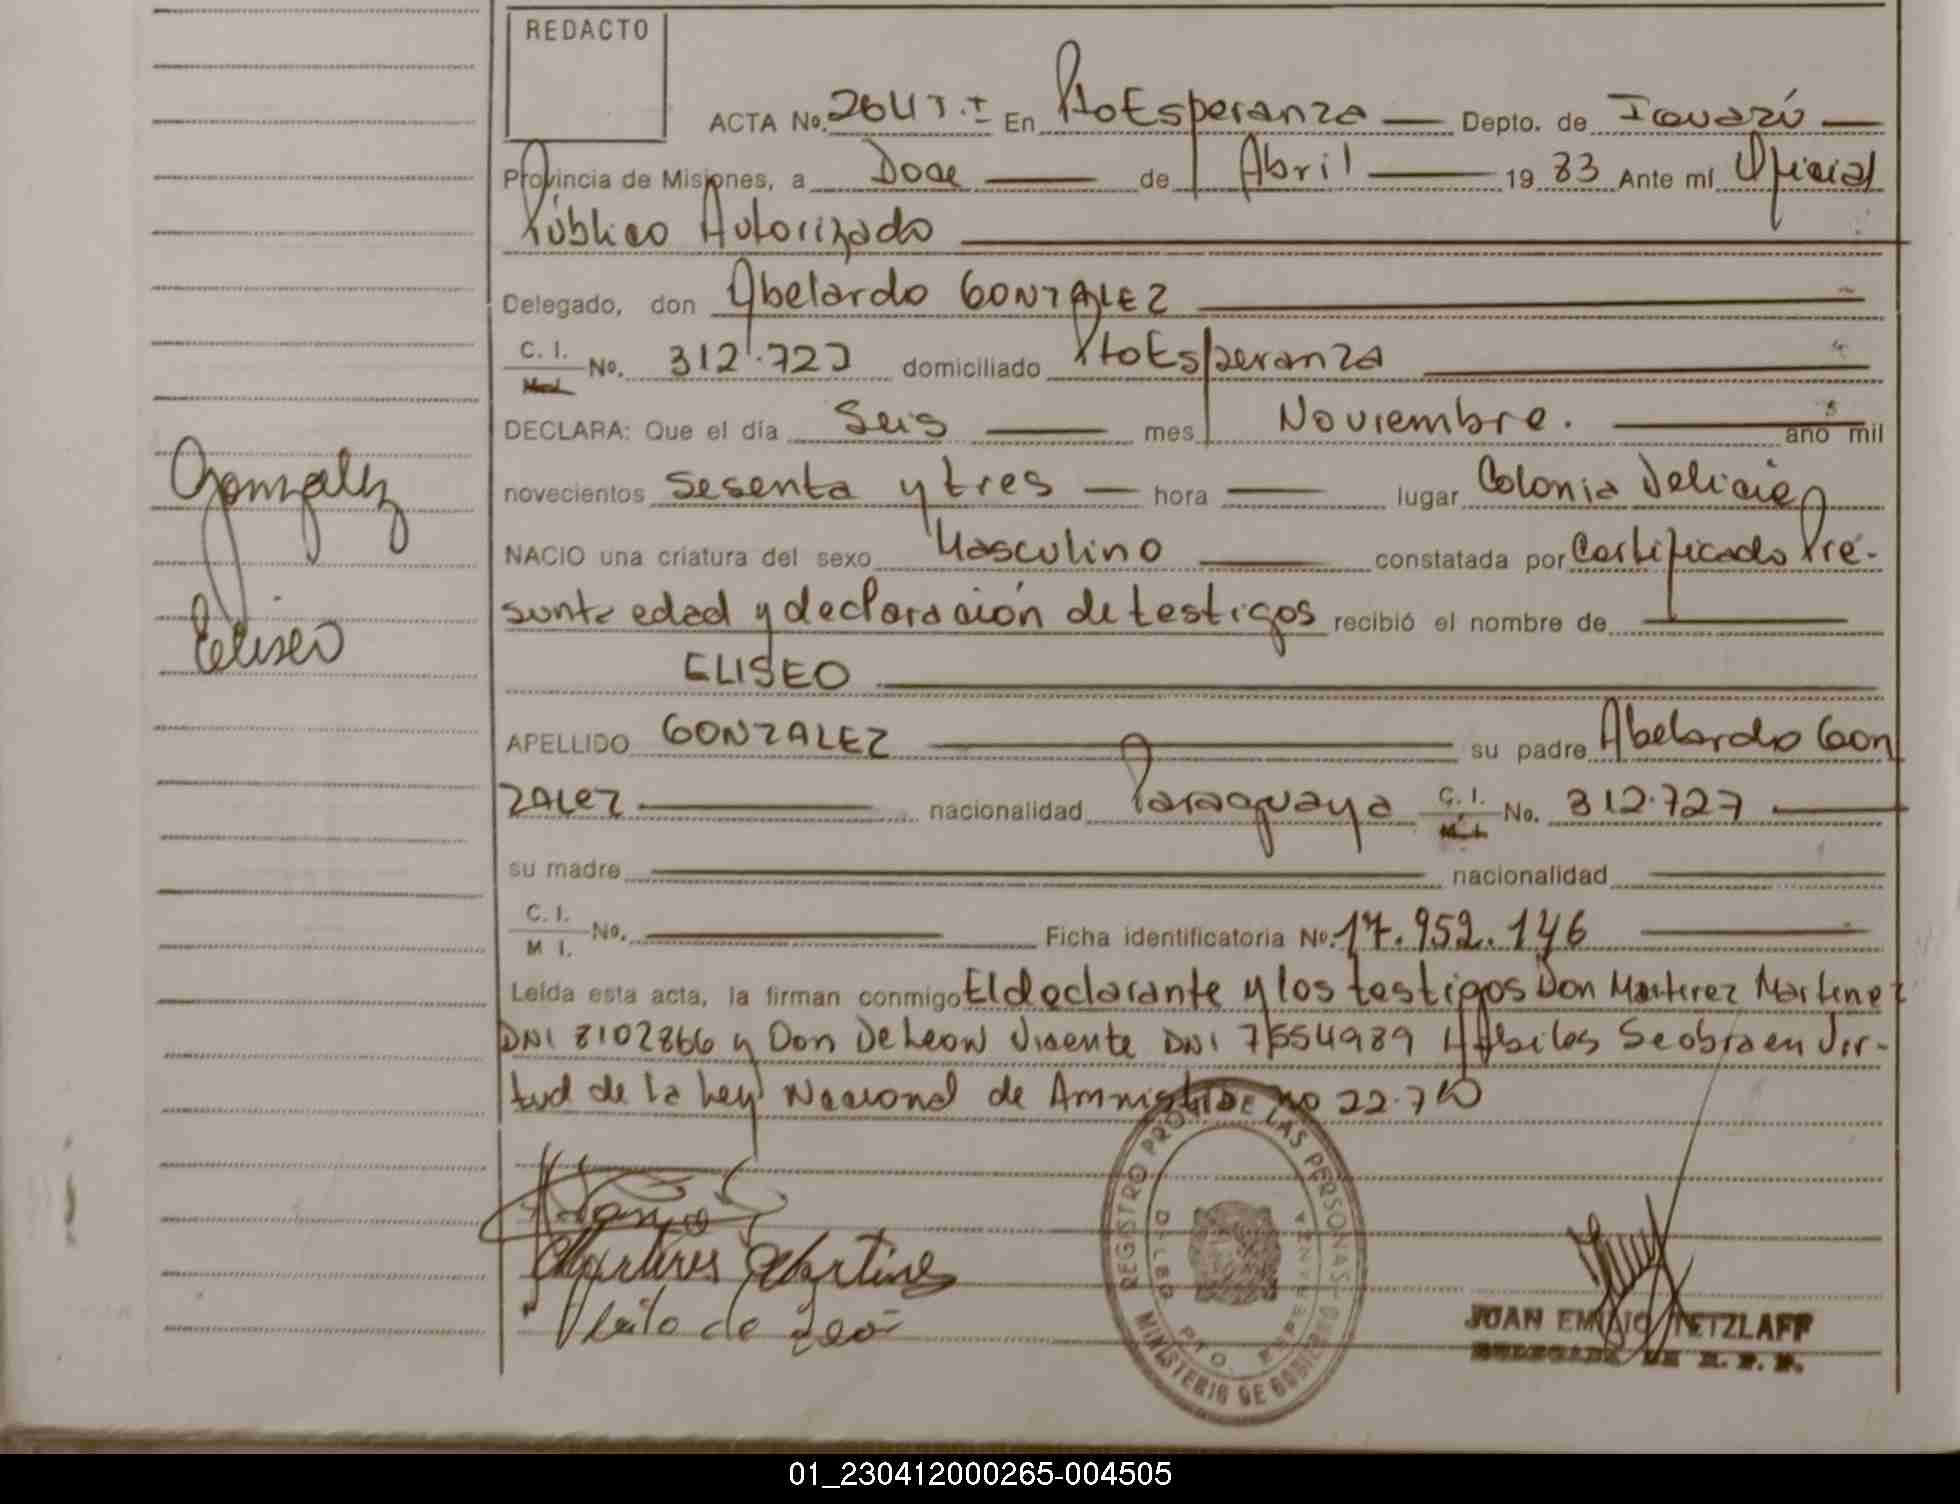 REDACTO
ACTA No. 264 T. I En Pto Esperanza Depto. de Iguazú
Provincia de Misiones, a Doce de Abril 19 83 Ante mí Oficial
Público Autorizado
Delegado, don Abelardo GONZALEZ
C. I. No. 312.727 domiciliado Pto Esperanza
DECLARA: Que el día Seis mes Noviembre. año mil
novecientos sesenta y tres hora lugar Colonia Delicia
NACIO una criatura del sexo Masculino constatada por Certificado Pre-
sunta edad y declaración de testigos recibió el nombre de
ELISEO
APELLIDO GONZALEZ su padre Abelardo Gon
zalez nacionalidad Paraguaya C. I. No. 312.727
su madre nacionalidad
C. I. M I. No. Ficha identificatoria No. 17.952.146
Leída esta acta, la firman conmigo El declarante y los testigos Don Martirez Martinez
DNI 8102866 y Don De Leon Vicente DNI 7554989 Hábiles Se obra en Vir-
tud de la Ley Nacional de Amnistia no 22.710
Gonzalez
Eliseo
Martires Martines
de Leon
REGISTRO PROV. DE LAS PERSONAS
MINISTERIO DE GOBIERNO
PTO. ESPERANZA
JUAN EMILIO TETZLAFF
DELEGADO DE R. P. P.
01_230412000265-004505